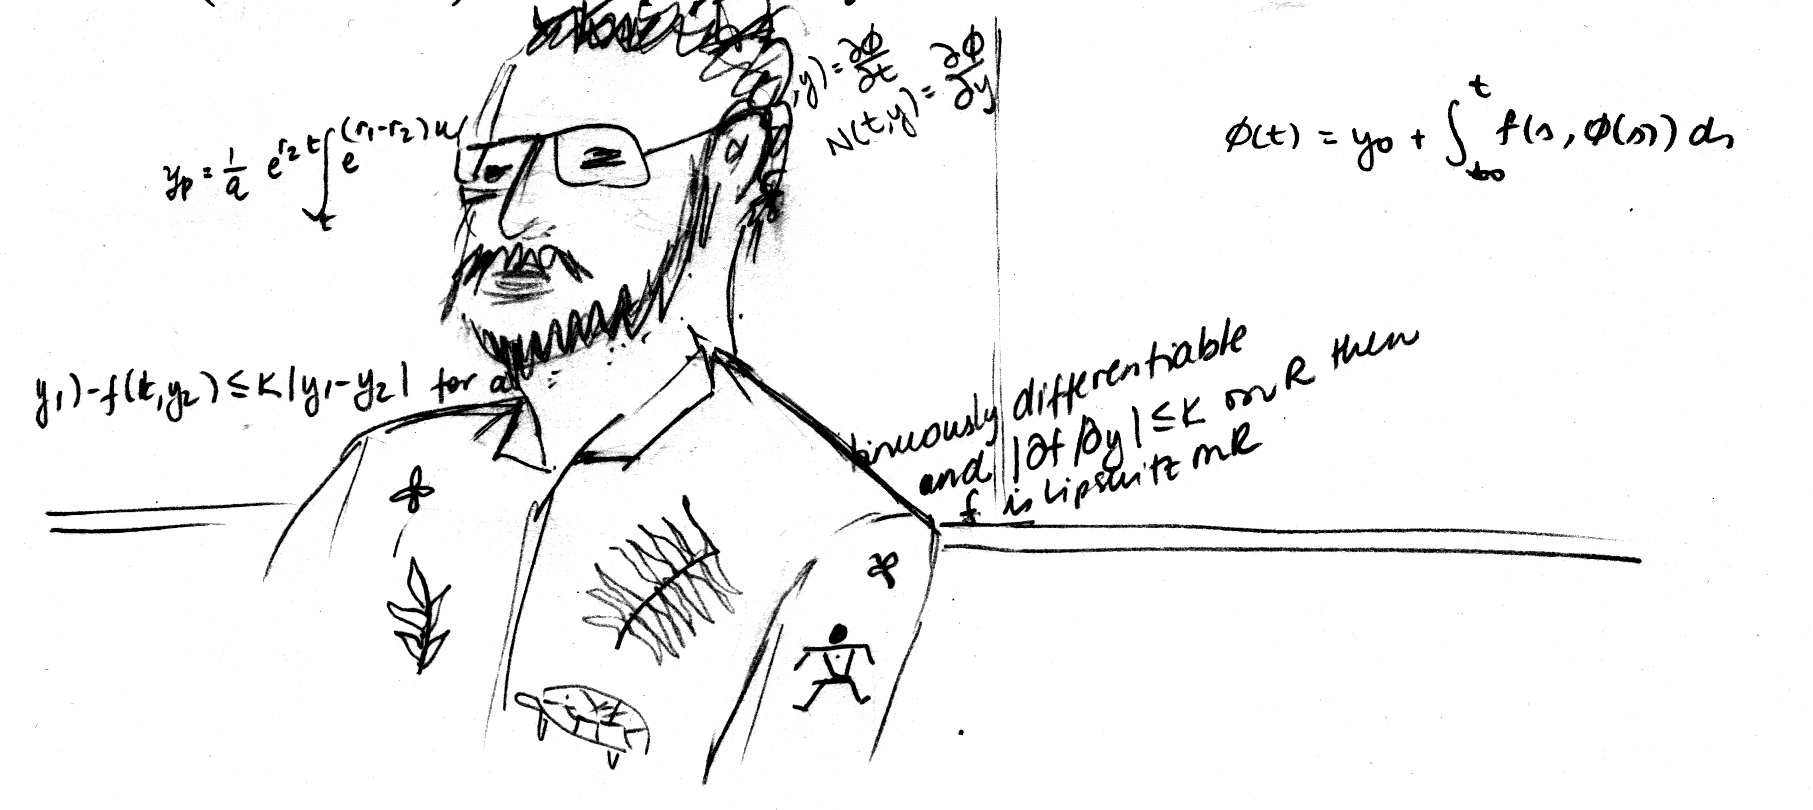 ,y) = ∂Φ/∂t
N(t,y) = ∂Φ/∂y
y_p = 1/a e^{r_2 t} ∫_t e^{(r_1-r_2)u}
ϕ(t) = y_0 + ∫_{t_0}^{t} f(s, ϕ(s)) ds
y_1) - f(t, y_2) ≤ K |y_1 - y_2| for a
tinuously differentiable
and |∂f/∂y| ≤ K on R then
f is Lipscuitz on R